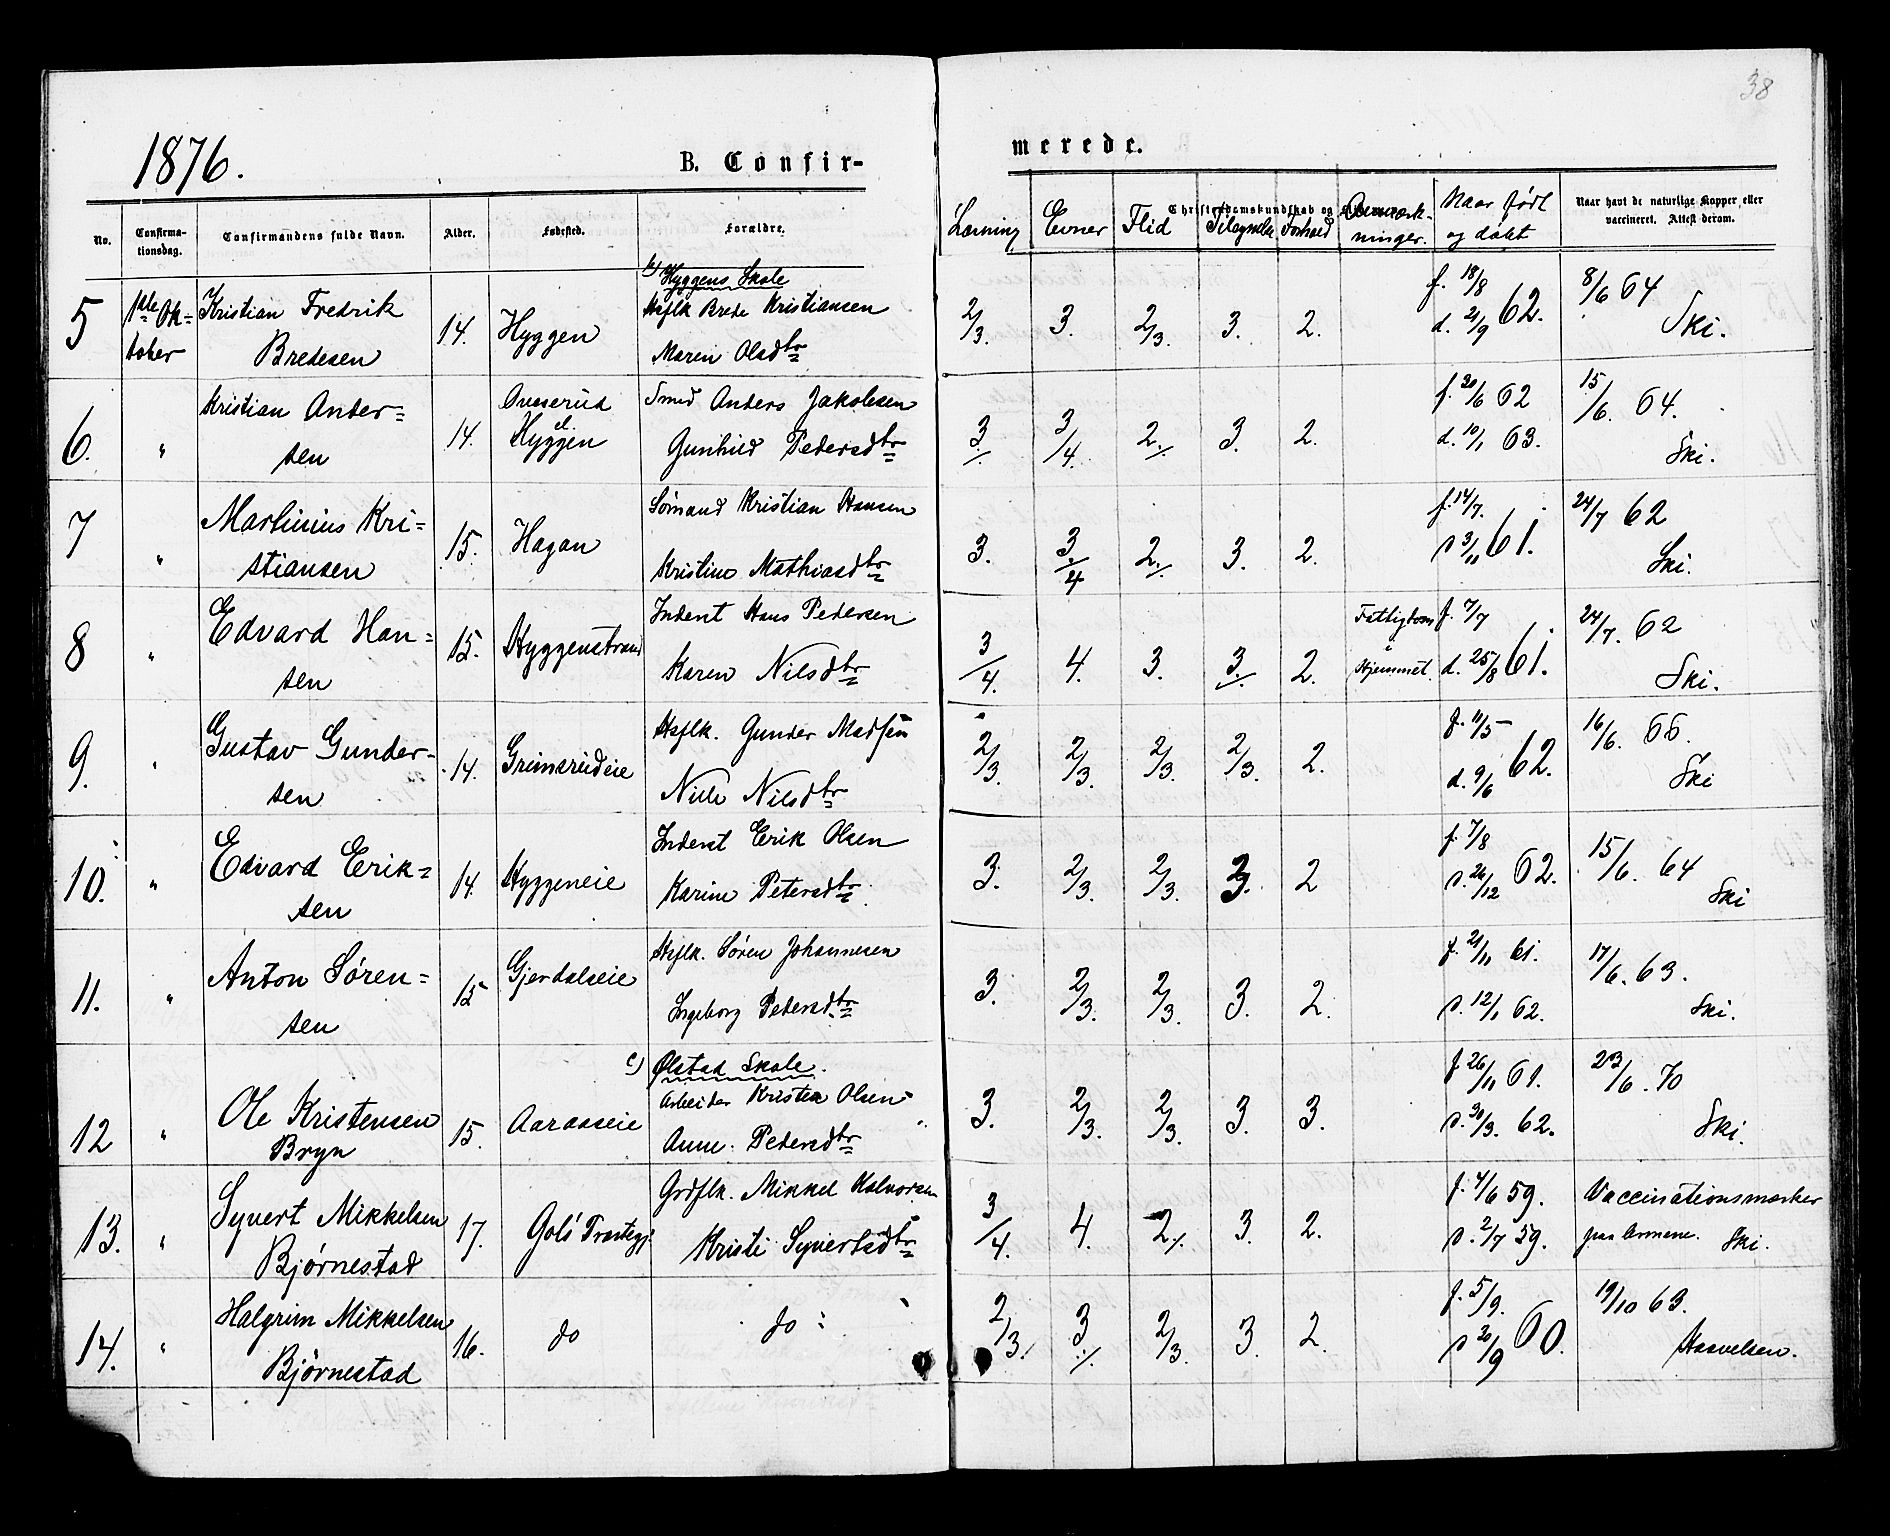 38
1876.
B. Confir-
merede.
No.
Confirma-
tionsdag.
Confirmandens fulde Navn.
Alder.
Fødested.
Forældre.
Læsning
Evner
Flid
Christendomskundskab og
Tilegnelse
Forhold
Anmærk-
ninger.
Naar født
og døbt
Naar havt de naturlige Kopper, eller
vaccineret. Attest derom.
b) Hyggens Skole
5 1ste Ok- Kristian Fredrik 14. Hyggen Hsflk Brede Kristiansen 2/3. 3. 2/3. 3. 2. f. 18/8 62. 8/6 64
tober Bredesen Maren Olsdtr d. 21/9 Ski.
6. " Kristian Ander= 14. Oveserud Smed Anders Jakobsen 3./. 3/4. 2./. 3. 2. f. 20/6 62 15/6. 64.
sen el. Hyggen Gunhild Pedersdtr d. 10/1 63. Ski.
7 " Martinius Kri= 15. Hagan Sømand Kristian Hansen 3. 3./4 2./. 3. 2. f. 14/7. 61. 24/7 62
stiansen Kristine Mathiasdtr d 3/11 Ski.
8 " Edvard Han= 15. Hyggenstrand Inderst Hans Pedersen 3/4. 4. 3. 3./. 2. Fattigdom f. 7/7 61. 24/7. 62
sen Karen Nilsdtr i Hjemmet. d. 25/8 Ski.
9. " Gustav Gunder- 14. Grimsrudeie Hsflk. Gunder Madsen 2/3. 2/3. 2/3. 2/3. 2. f. 11/5 62. 16/6. 66.
sen Nilsdtr d. 9/6 Ski
10. " Edvard Erik= 14. Hyggeneie Inderst Erik Olsen 3. 2/3. 2/3. 3. 2 f. 7/8 62. 15/6. 64
sen Karine Petersdtr. d. 26/12 Ski
11. " Anton Søren= 15 Gjerdalseie Hsflk. Søren Johannesen 3. 2/3. 2/3. 3. 2. f. 21/11 61. 17/6. 63.
sen Ingeborg Pedersdtr d. 12/1 62. Ski.
c) Ølstad Skole.
12 " Ole Kristensen 15. Aaraseie Arbeider Kristen Olsen 3. 2/3. 2/3. 3. 3. f. 26/11 61. 23/6. 70
Bryn Anne Pedersdtr d. 30/3. 62. Ski.
13. " Syvert Mikkelsen 17. Gols Præstegj. Grdflk. Mikkel Halvorsen 3/4. 4. 2/. 3. 2. f. 4/6 59. Vaccinationsmærker
Bjørnestad Kristi Syvertsdtr d. 2/7 59. paa Armene. Ski.
14. " Halgrim Mikkelsen 16. do do : 2/3. 3/. 2/3. 3. 2. f. 5/9. 60. 19/10 63.
Bjørnestad d 30/9 Hasvelsen.